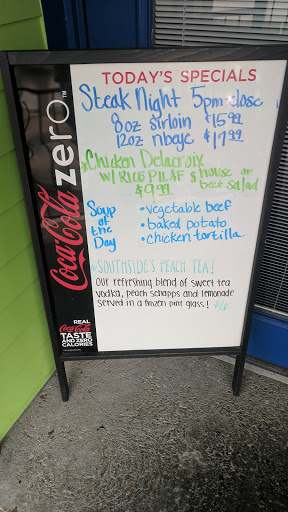 TODAY'S SPECIALS
Steak Night 5pm-close
8oz Sirloin $15.99
12oz ribeye $17.99
Chicken Delacroix
w/ RICE PILAF & house or
$9.99 beef salad
Soup of the Day
• vegetable beef
• baked potato
• chicken tortilla
• SOUTHSIDE'S PEACH TEA!
Our refreshing blend of sweet tea
vodka, peach schapps and lemonade
served in a frozen pint glass! $6
Coca-Cola zero™
REAL
Coca-Cola
TASTE
AND ZERO
CALORIES